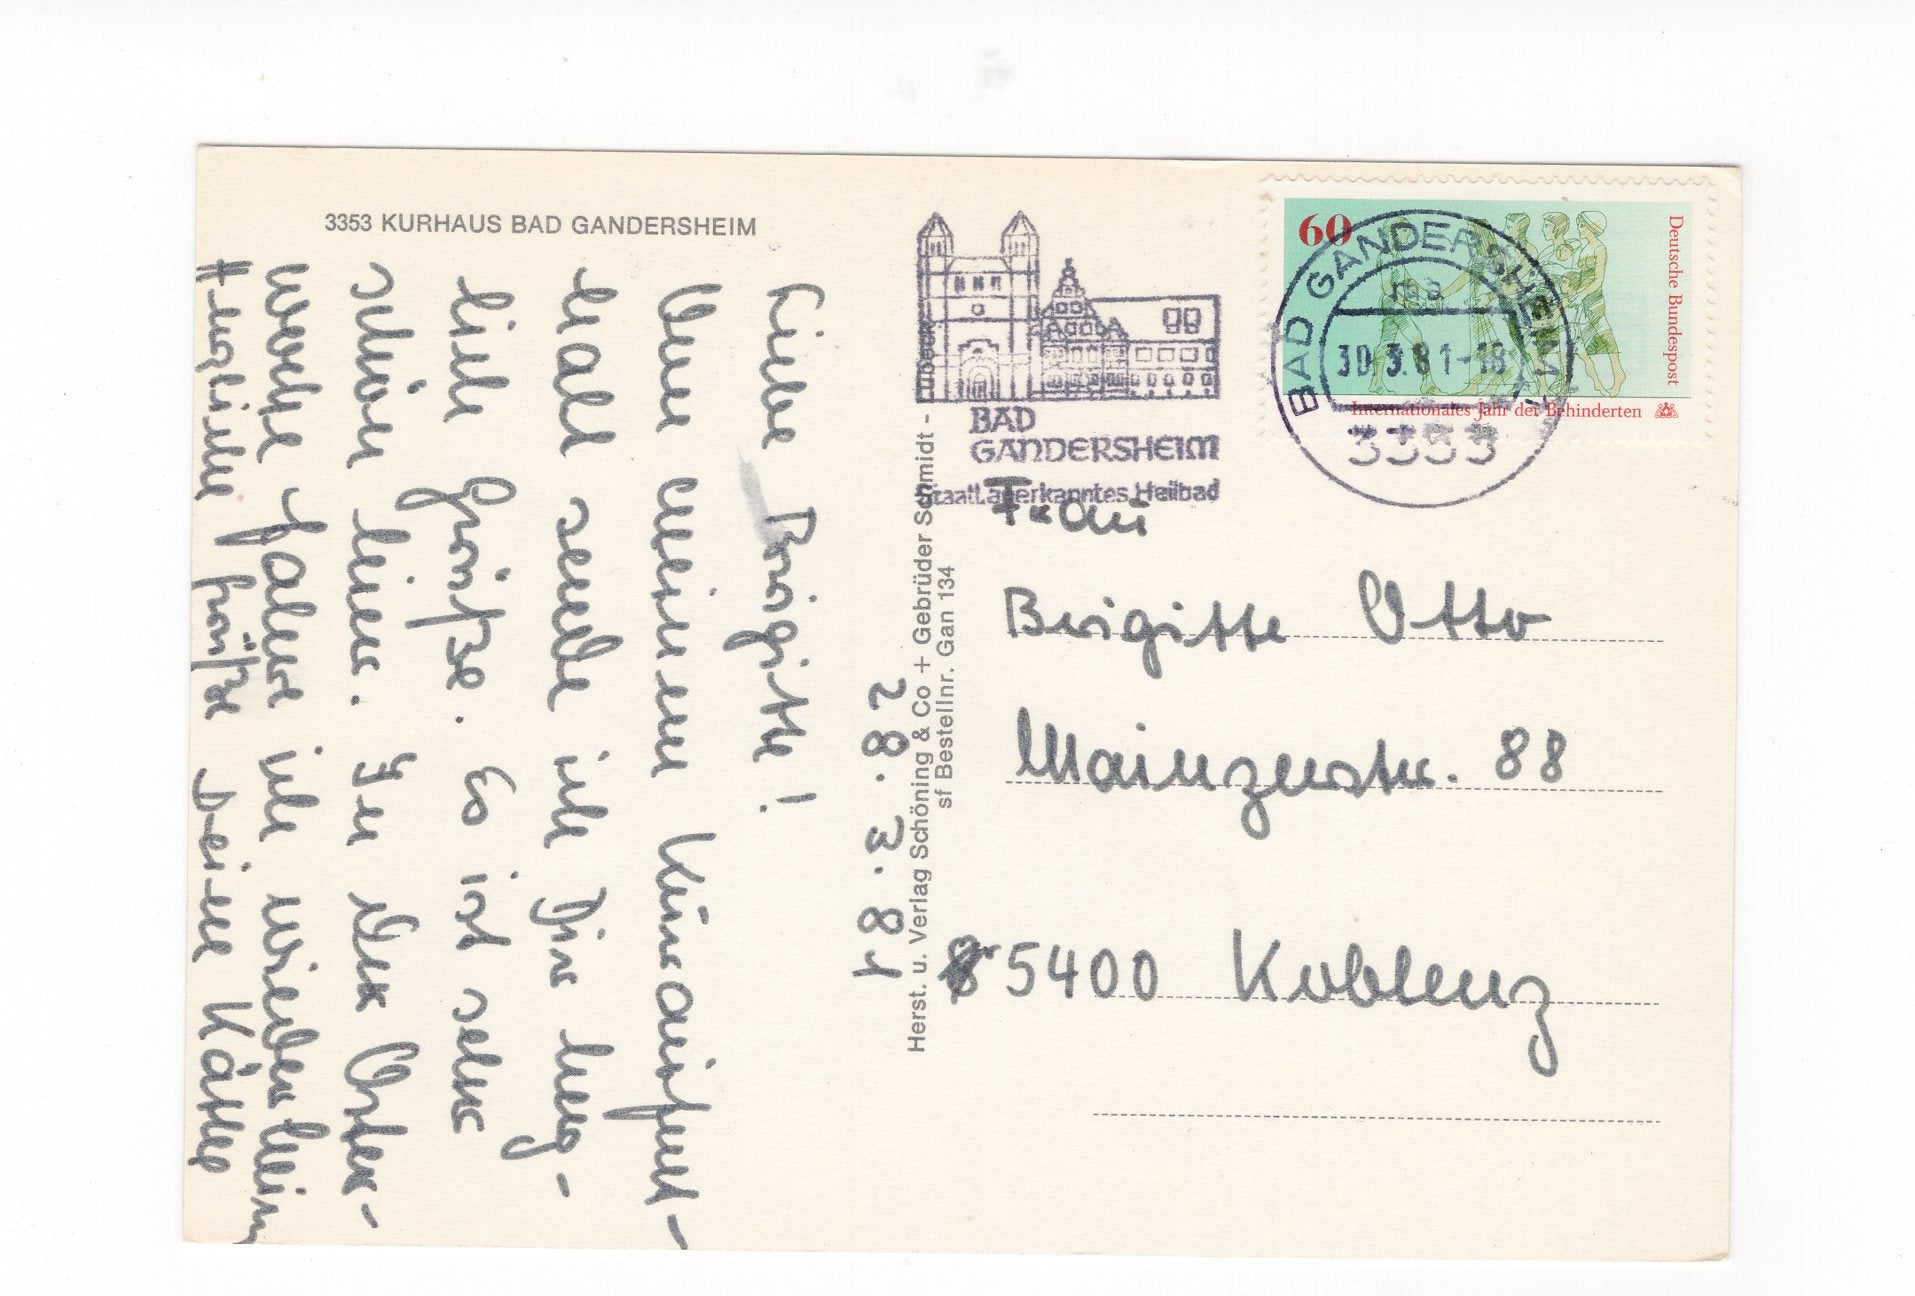 3353 KURHAUS BAD GANDERSHEIM
28.3.81
Liebe Brigitte!
Von meinem Kuraufent-
halt sende ich Dir herz-
liche Grüße. Es ist sehr
schön hier. In der Oster-
woche fahre ich wieder heim
Herzliche Grüße Deine Käthe
Herst. u. Verlag Schöning & Co + Gebrüder Schmidt - Lübeck
sf Bestellnr. Gan 134
BAD
GANDERSHEIM
Staatl. anerkanntes Heilbad
60
Deutsche Bundespost
Internationales Jahr der Behinderten
BAD GANDERSHEIM
30.3.81-18
3353
Frau
Brigitte Otto
Mainzerstr. 88
5400 Koblenz